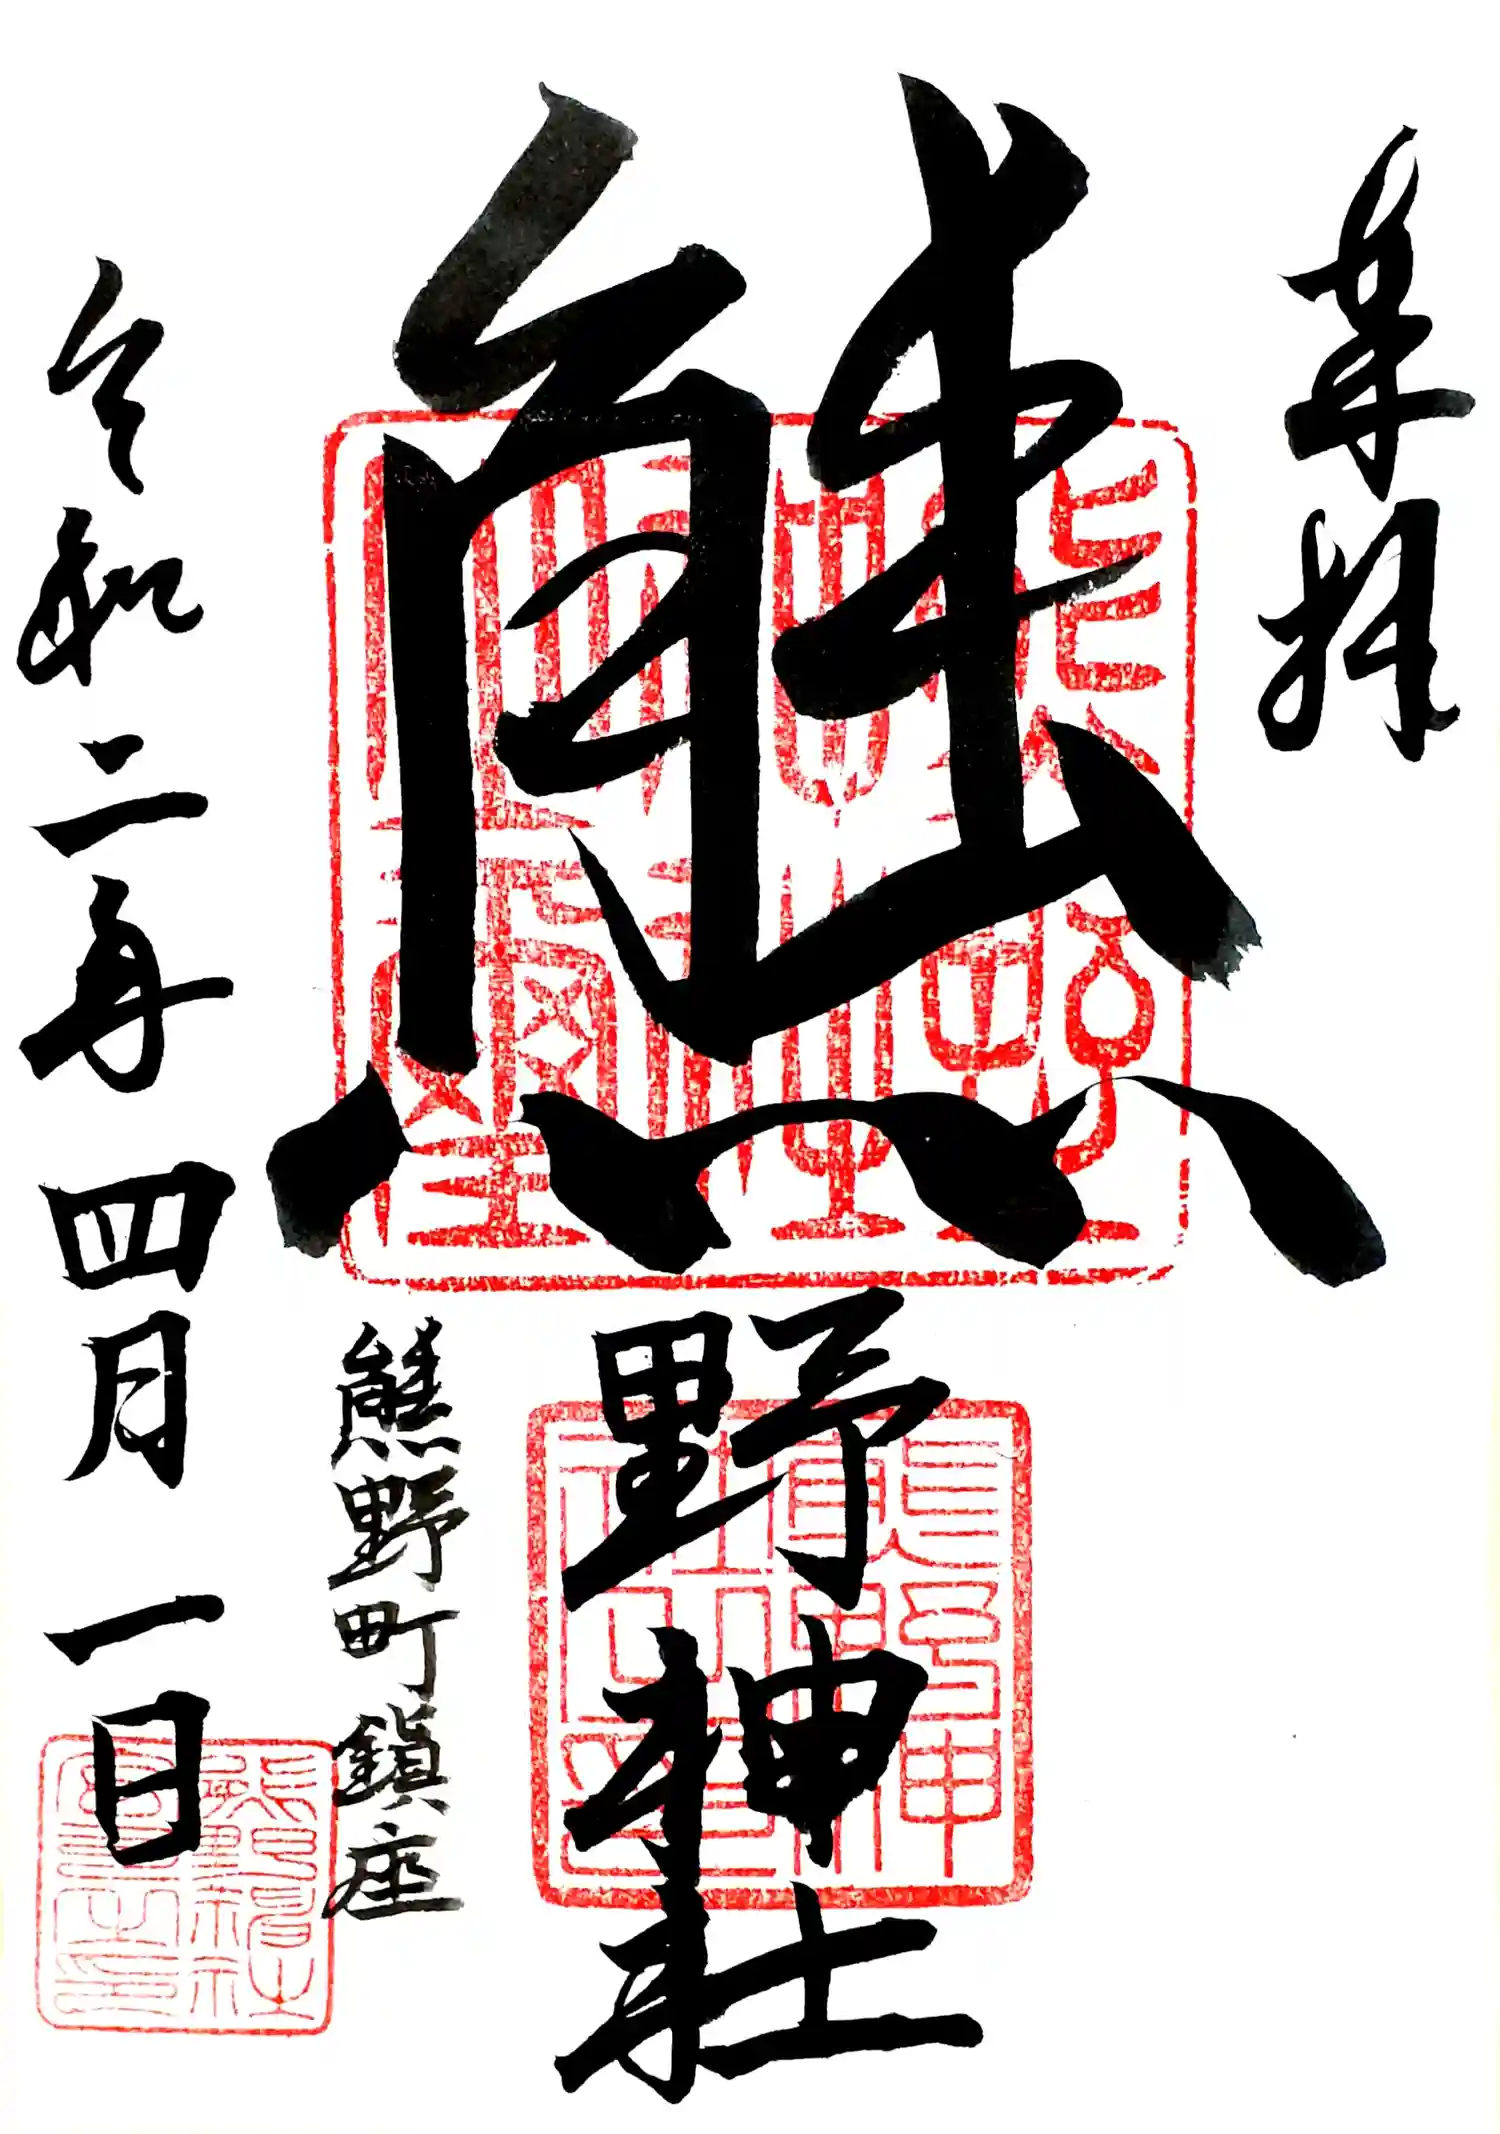 奉拝
熊野神社
熊野町鎮座
令和二年四月一日